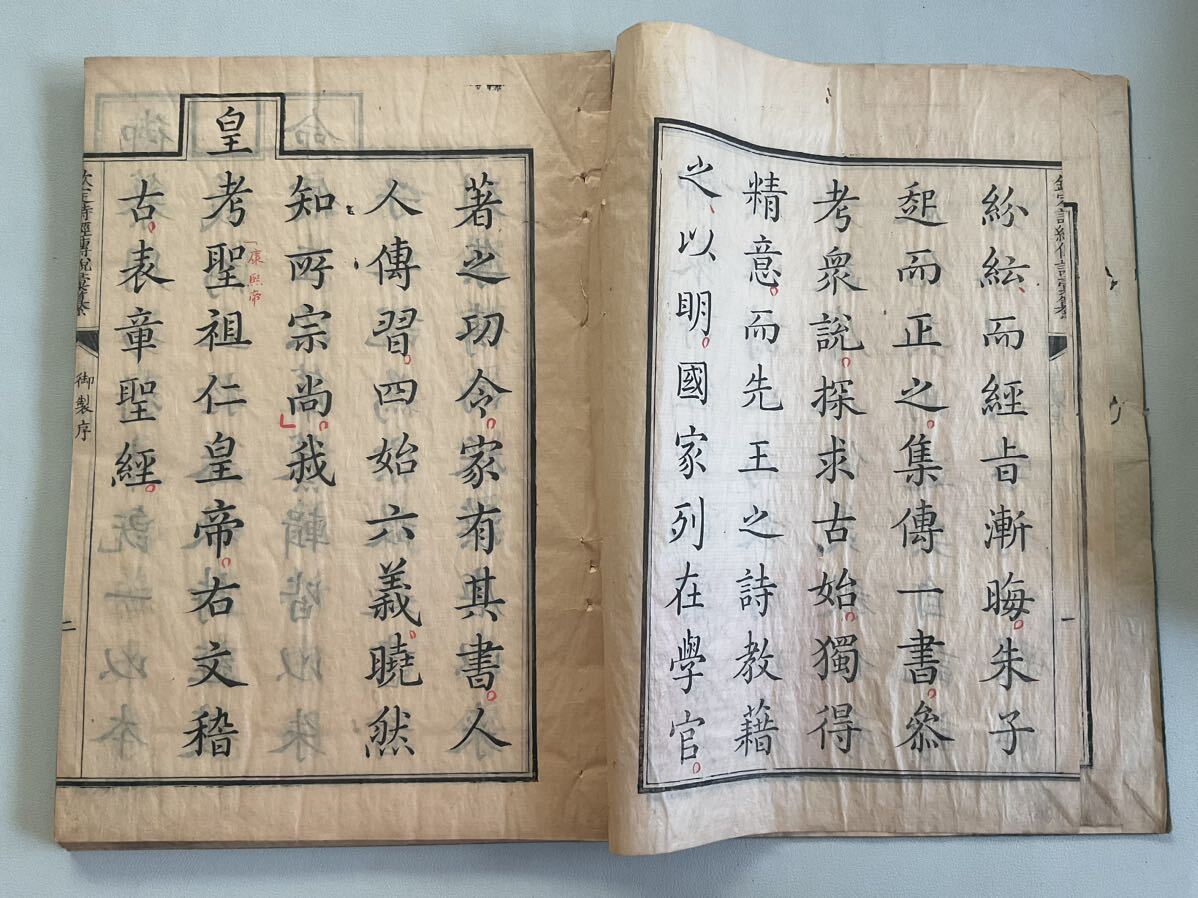 紛紜而經旨漸晦朱子
起而正之集傳一書參
考衆說探求古始獨得
精意而先王之詩教藉
之以明國家列在學官
著之功令家有其書人
人傳習四始六義曉然
知所宗尚我
皇
考聖祖仁皇帝右文稽
康熙帝
古表章聖經
欽定詩經傳說彙纂
御製序
二
欽定詩經傳說彙纂
一